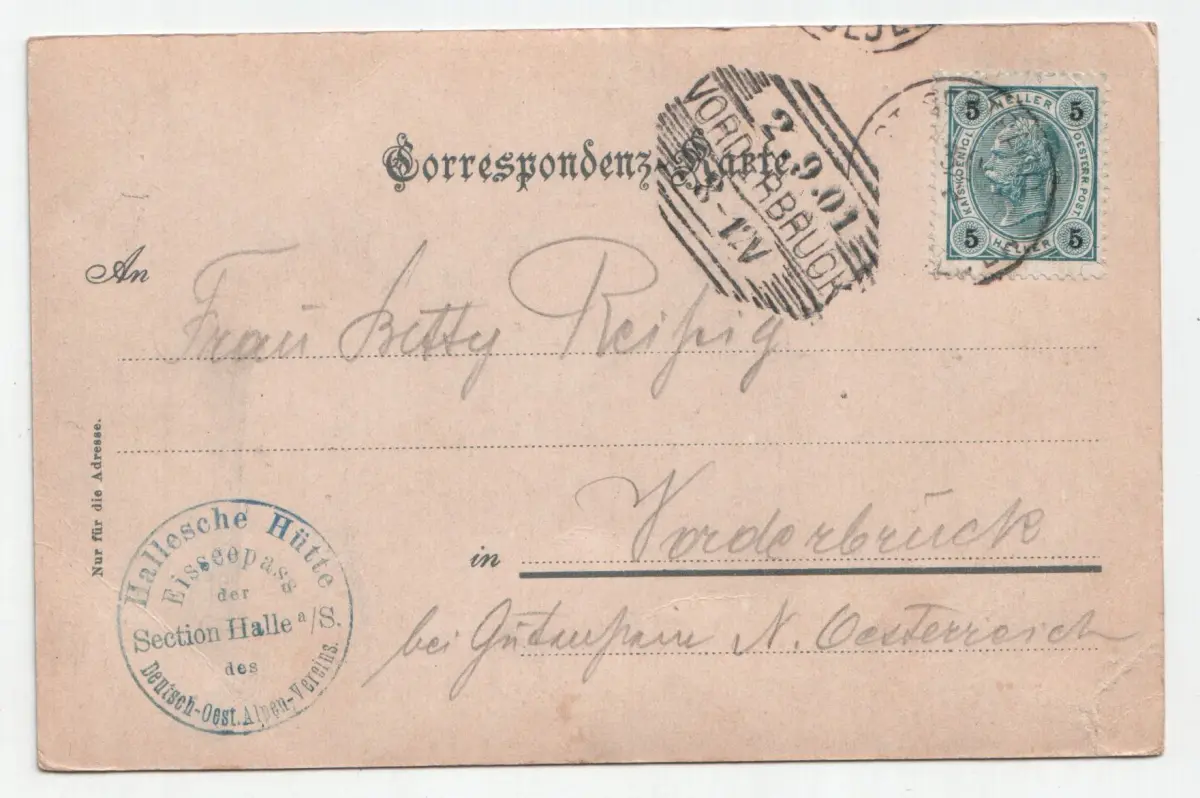 Correspondenz-Karte.
VORDERBRUCK
2.9.01
8-12V
5 HELLER 5
KAIS.KOENIGL. OESTERR.POST.
5 HELLER 5
An Frau Betty Reißig
Nur für die Adresse.
in Vorderbrück
bei Gutenstein N. Oesterreich
Hallesche Hütte
Eisseepass
der
Section Halle a/S.
des
Deutsch-Oest.Alpen-Vereins.